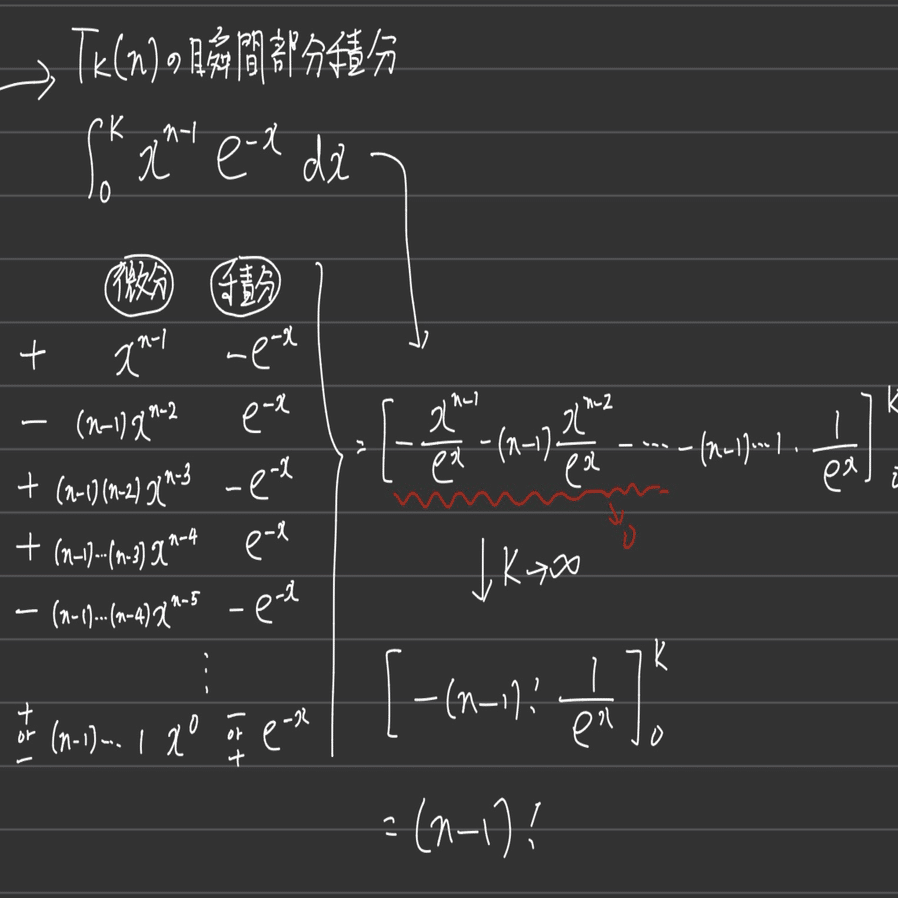 → Γk(n)の瞬間部分積分
∫₀ᴷ xⁿ⁻¹ e⁻ˣ dx
微分 積分
+ xⁿ⁻¹ -e⁻ˣ
- (n-1)xⁿ⁻² e⁻ˣ
+ (n-1)(n-2)xⁿ⁻³ -e⁻ˣ
+ (n-1)…(n-3)xⁿ⁻⁴ e⁻ˣ
- (n-1)…(n-4)xⁿ⁻⁵ -e⁻ˣ
⋮
+ or - (n-1)… 1 x⁰ - or + e⁻ˣ
= [ -xⁿ⁻¹/eˣ -(n-1)xⁿ⁻²/eˣ - … -(n-1)…1 · 1/eˣ ]₀ᴷ
→ 0
↓ K→∞
[ -(n-1)! 1/eˣ ]₀ᴷ
= (n-1)!